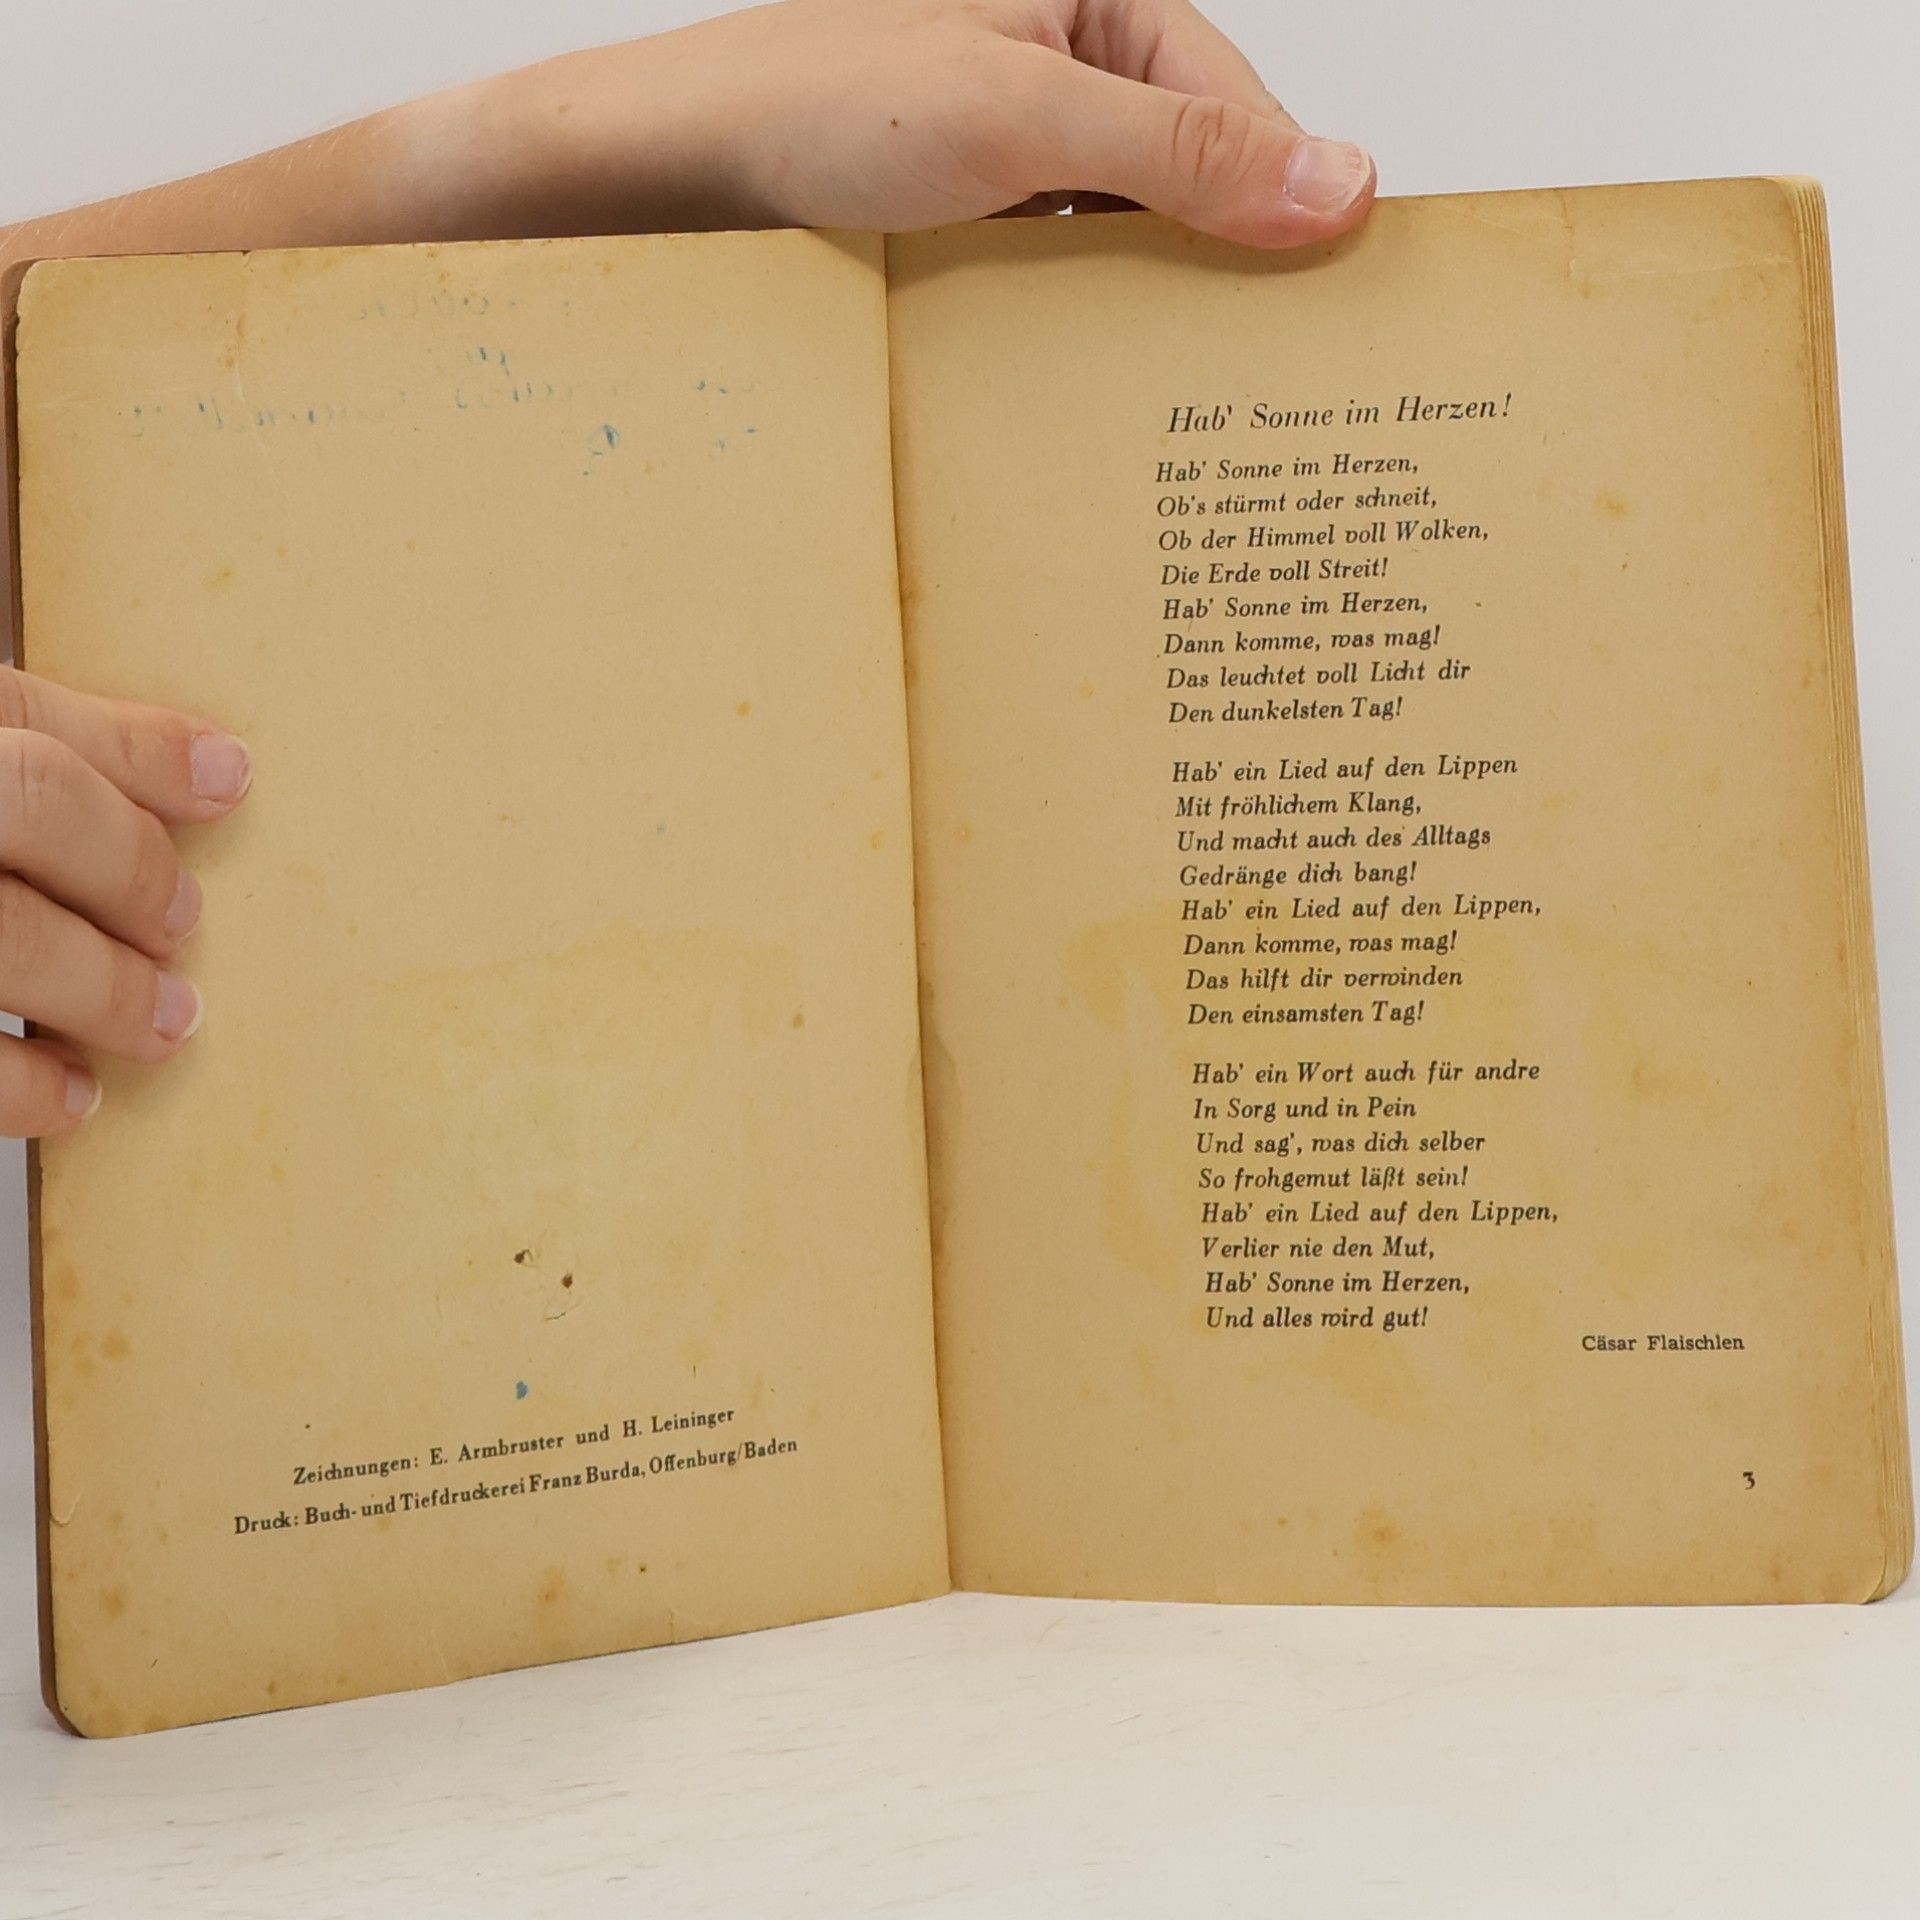 Zeichnungen: E. Armbruster und H. Leininger
Druck: Buch- und Tiefdruckerei Franz Burda, Offenburg/Baden
Hab' Sonne im Herzen!
Hab' Sonne im Herzen,
Ob's stürmt oder schneit,
Ob der Himmel voll Wolken,
Die Erde voll Streit!
Hab' Sonne im Herzen,
Dann komme, was mag!
Das leuchtet voll Licht dir
Den dunkelsten Tag!
Hab' ein Lied auf den Lippen
Mit fröhlichem Klang,
Und macht auch des Alltags
Gedränge dich bang!
Hab' ein Lied auf den Lippen,
Dann komme, was mag!
Das hilft dir verwinden
Den einsamsten Tag!
Hab' ein Wort auch für andre
In Sorg und in Pein
Und sag', was dich selber
So frohgemut läßt sein!
Hab' ein Lied auf den Lippen,
Verlier nie den Mut,
Hab' Sonne im Herzen,
Und alles wird gut!
Cäsar Flaischlen
3